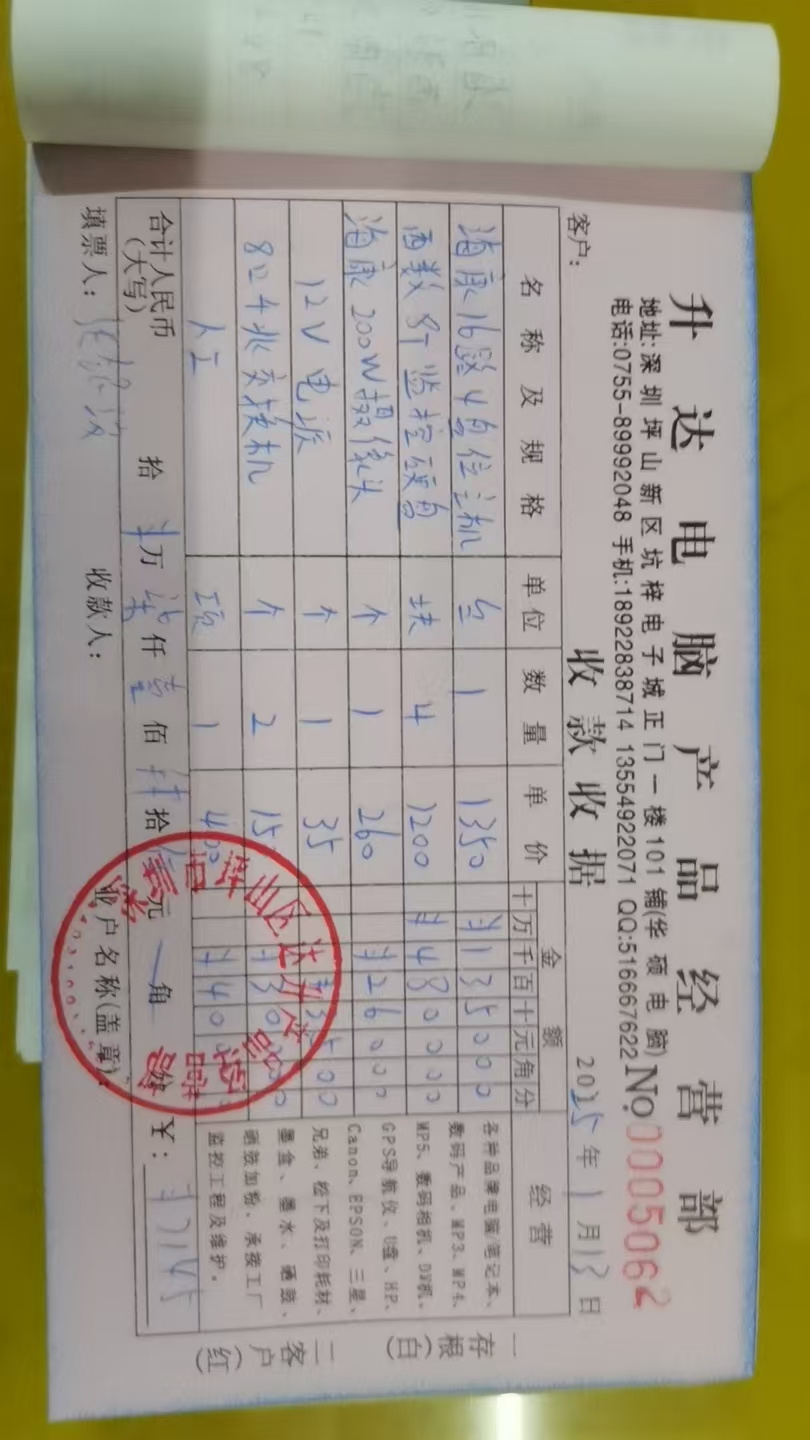 升达电脑产品经营部
地址:深圳坪山新区坑梓电子城正门一楼101铺(华硕电脑)
电话:0755-89992048 手机:18922838714 13554922071 QQ:516667622
No.0005062
收款收据
客户:
2025年1月13日
名称及规格 单位 数量 单价 金额 经营
十万千百十元角分
海康16路4盘位主机 台 1 1350 ¥135000
西数8T监控硬盘 块 4 1200 ¥480000
海康200W摄像头 个 1 260 ¥26000
12V电源 个 1 35 ¥3500
8口千兆交换机 个 2 150 ¥30000
人工 项 1 400 ¥40000
各种品牌电脑/笔记本、
数码产品、MP3、MP4、
MP5、数码相机、DV机、
GPS导航仪、U盘、HP、
Canon、EPSON、三星、
兄弟、松下及打印耗材、
墨盒、墨水、硒鼓、
硒鼓加粉、承接工厂
监控工程及维护。
合计人民币(大写) 拾 万 柒仟壹佰肆拾伍元 角 分 ¥:¥7145
填票人: 收款人: 业户名称(盖章):
一存根(白) 二客户(红)